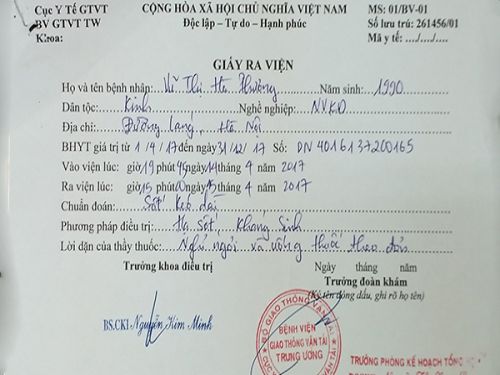 Cục Y Tế GTVT
BV GTVT TW
Khoa:
CỘNG HÒA XÃ HỘI CHỦ NGHĨA VIỆT NAM
Độc lập - Tự do - Hạnh phúc
MS: 01/BV-01
Số lưu trú: 261456/01
Mã y tế: ..../....
GIẤY RA VIỆN
Họ và tên bệnh nhân: Vũ Thị Hà Phương Năm sinh: 1990
Dân tộc: Kinh Nghề nghiệp: NVKD
Địa chỉ: Đường Láng, Hà Nội
BHYT giá trị từ 1/4/17 đến ngày 31/12/17 Số: DN 4016137200165
Vào viện lúc: giờ 19 phút 45 ngày 14 tháng 4 năm 2017
Ra viện lúc: giờ 15 phút 00 ngày 15 tháng 4 năm 2017
Chuẩn đoán: Sốt kéo dài
Phương pháp điều trị: Hạ sốt, kháng sinh
Lời dặn của thầy thuốc: Nghỉ ngơi và uống thuốc theo đơn
Trưởng khoa điều trị
Ngày tháng năm
Trưởng đoàn khám
(Ký tên đóng dấu, ghi rõ họ tên)
BS.CKI Nguyễn Kim Minh
BỘ GIAO THÔNG VẬN TẢI
BỆNH VIỆN
GIAO THÔNG VẬN TẢI
TRUNG ƯƠNG
TRƯỞNG PHÒNG KẾ HOẠCH TỔNG